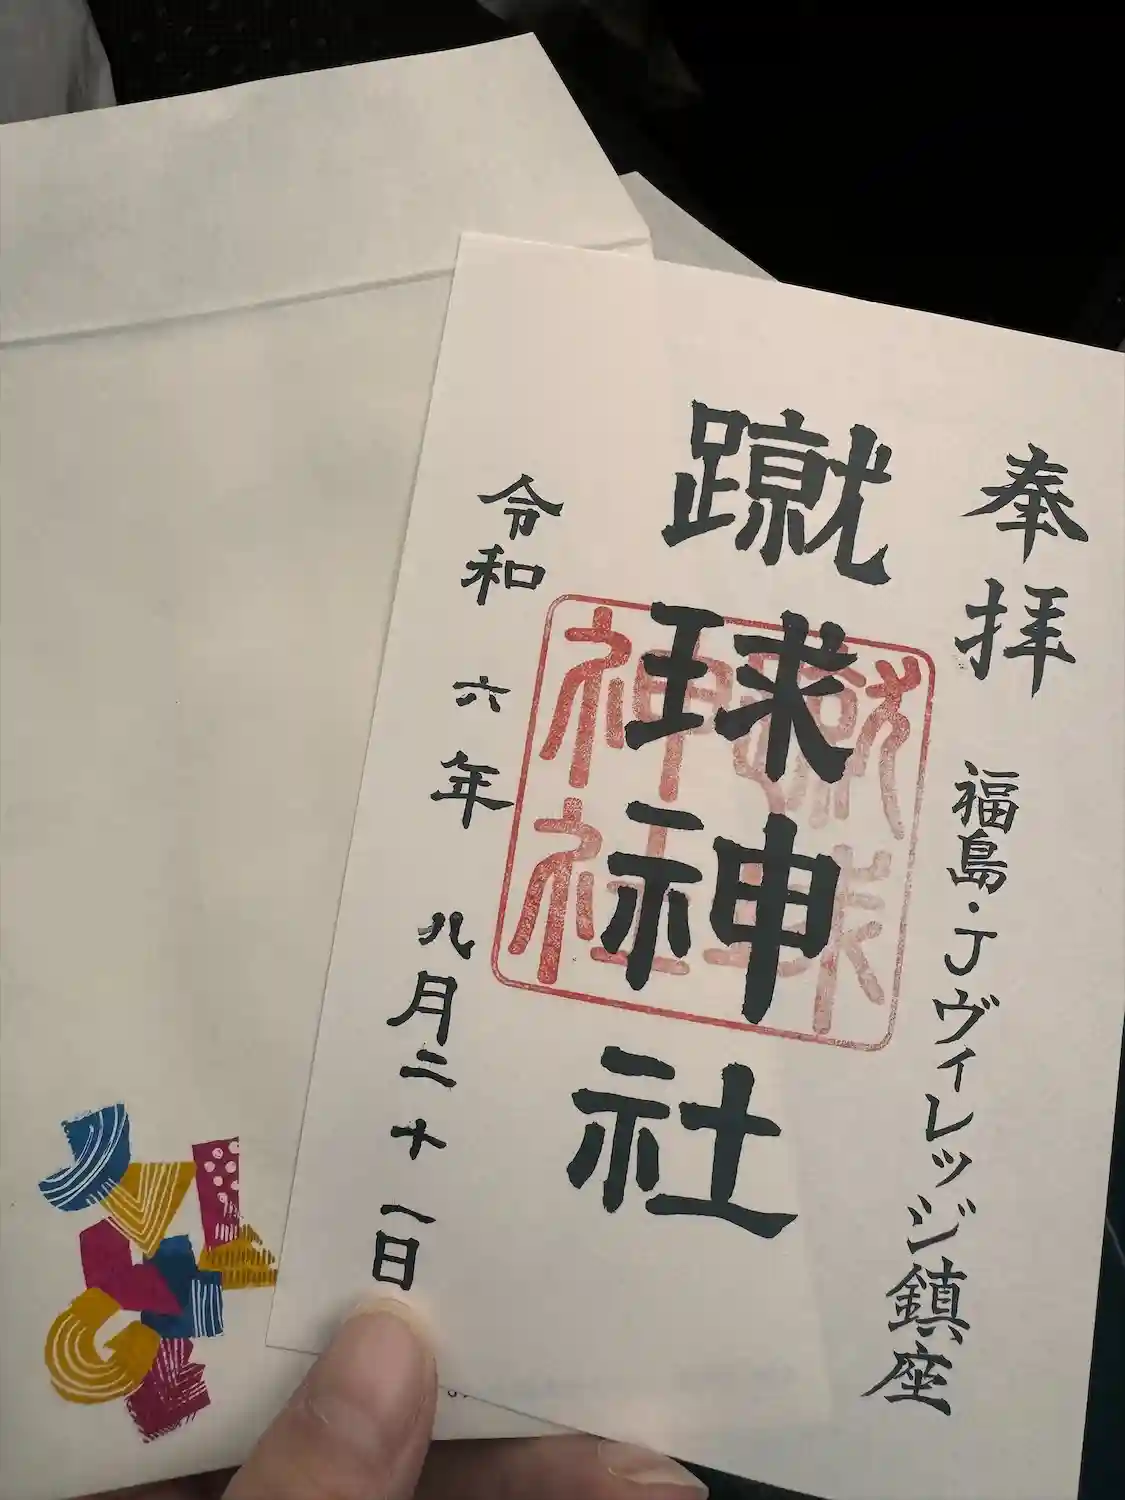 奉拝 福島・Jヴィレッジ鎮座
蹴球神社
蹴球神社
令和六年八月二十一日